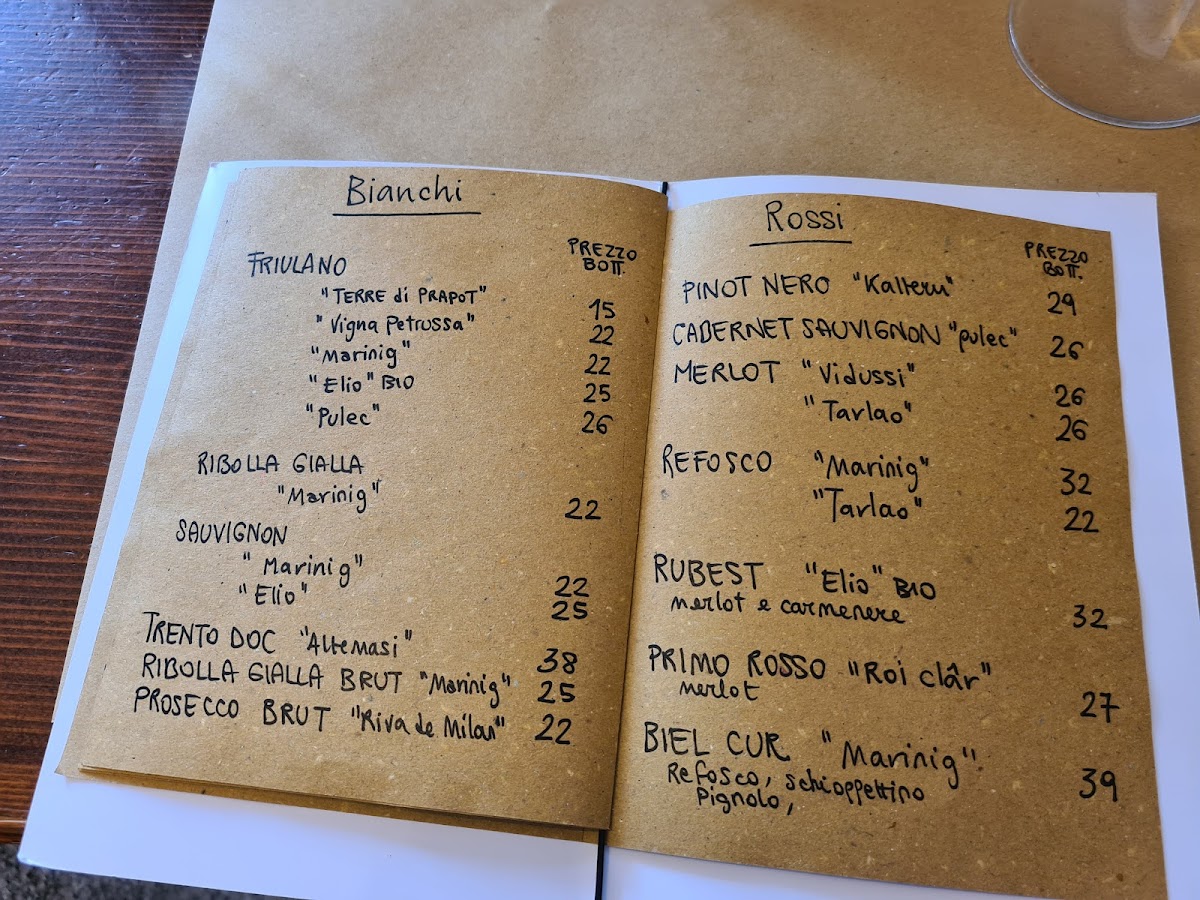 Bianchi
PREZZO
BOTT.
FRIULANO
"TERRE di PRAPOT" 15
"Vigna Petrussa" 22
"Marinig" 22
"Elio" BIO 25
"Pulec" 26
RIBOLLA GIALLA
"Marinig" 22
SAUVIGNON
"Marinig" 22
"Elio" 25
TRENTO DOC "Altemasi" 38
RIBOLLA GIALLA BRUT "Marinig" 25
PROSECCO BRUT "Riva de Milan" 22
Rossi
PREZZO
BOTT.
PINOT NERO "Kaltern" 29
CABERNET SAUVIGNON "pulec" 26
MERLOT "Vidussi" 26
"Tarlao" 26
REFOSCO "Marinig" 32
"Tarlao" 22
RUBEST "Elio" BIO
merlot e carmenere 32
PRIMO ROSSO "Roi clâr"
merlot 27
BIEL CUR "Marinig"
Refosco, schioppettino 39
Pignolo,